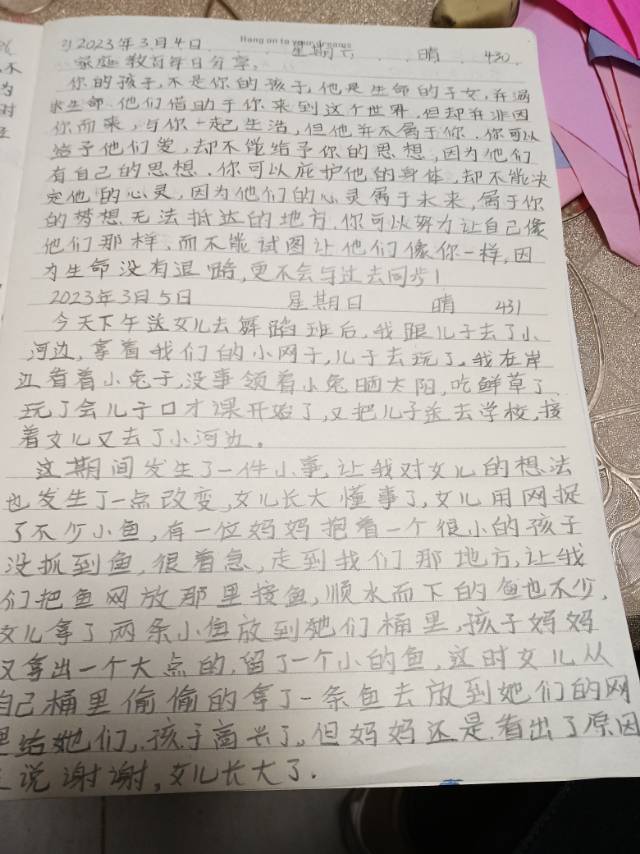 Hang on to your dreams
2023年3月4日 星期六 晴 430
家庭教育每日分享。
你的孩子,不是你的孩子,他是生命的子女,并渴
求生命.他们借助于你来到这个世界,但却并非因
你而来,与你一起生活,但他并不属于你.你可以
给予他们爱,却不能给予你的思想,因为他们
有自己的思想.你可以庇护他的身体,却不能决
定他的心灵,因为他们的心灵属于未来,属于你
的梦想无法抵达的地方.你可以努力让自己像
他们那样,而不能试图让他们像你一样,因
为生命没有退路,更不会与过去同步!
2023年3月5日 星期日 晴 431
今天下午送女儿去舞蹈班后,我跟儿子去了小
河边,拿着我们的小网子,儿子去玩了,我在岸
边看着小兔子,没事领着小兔晒太阳,吃鲜草了
玩了会儿子口才课开始了,又把儿子送去学校,接
着女儿又去了小河边。
这期间发生了一件小事,让我对女儿的想法
也发生了一点改变,女儿长大懂事了,女儿用网捉
了不少小鱼,有一位妈妈抱着一个很小的孩子
没抓到鱼,很着急,走到我们那地方,让我
们把鱼网放那里接鱼,顺水而下的鱼也不少,
女儿拿了两条小鱼放到她们桶里,孩子妈妈
又拿出一个大点的,留了一个小的鱼,这时女儿从
自己桶里偷偷的拿了一条鱼去放到她们的网
里给她们,孩子高兴了,但妈妈还是看出了原因
说谢谢,女儿长大了.